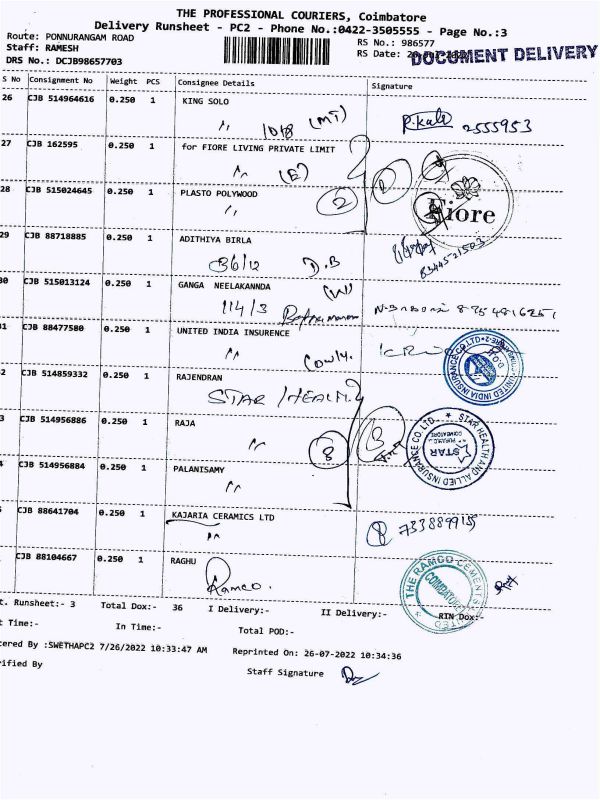 THE PROFESSIONAL COURIERS, Coimbatore
Delivery Runsheet - PC2 - Phone No.:0422-3505555 - Page No.:3
Route: PONNURANGAM ROAD
RS No.: 986577
Staff: RAMESH
RS Date:
DOCUMENT DELIVERY
DRS No.: DCJB98657703
S No Consignment No Weight PCS Consignee Details Signature
26 CJB 514964616 0.250 1 KING SOLO
1018 (MT) 2555953
27 CJB 162595 0.250 1 for FIORE LIVING PRIVATE LIMIT
(E) 1
28 CJB 515024645 0.250 1 PLASTO POLYWOOD
2 Fiore
29 CJB 88718885 0.250 1 ADITHIYA BIRLA
36/12 D.B 8344521503
30 CJB 515013124 0.250 1 GANGA NEELAKANNDA
114/3 (W)
31 CJB 88477580 0.250 1 UNITED INDIA INSURENCE
UNITED INDIA INSURANCE CO. LTD.
2 CJB 514859332 0.250 1 RAJENDRAN
STAR HEALTH
3 CJB 514956886 0.250 1 RAJA
8 3
STAR HEALTH AND ALLIED INSURANCE CO. LTD.
STAR
COIMBATORE
4 CJB 514956884 0.250 1 PALANISAMY
CJB 88641704 0.250 1 KAJARIA CERAMICS LTD
CJB 88104667 0.250 1 RAGHU
Ramco.
THE RAMCO CEMENTS LIMITED
COIMBATORE
t. Runsheet:- 3 Total Dox:- 36 I Delivery:- II Delivery:- RTN Dox:-
t Time:- In Time:- Total POD:-
tered By :SWETHAPC2 7/26/2022 10:33:47 AM Reprinted On: 26-07-2022 10:34:36
rified By Staff Signature